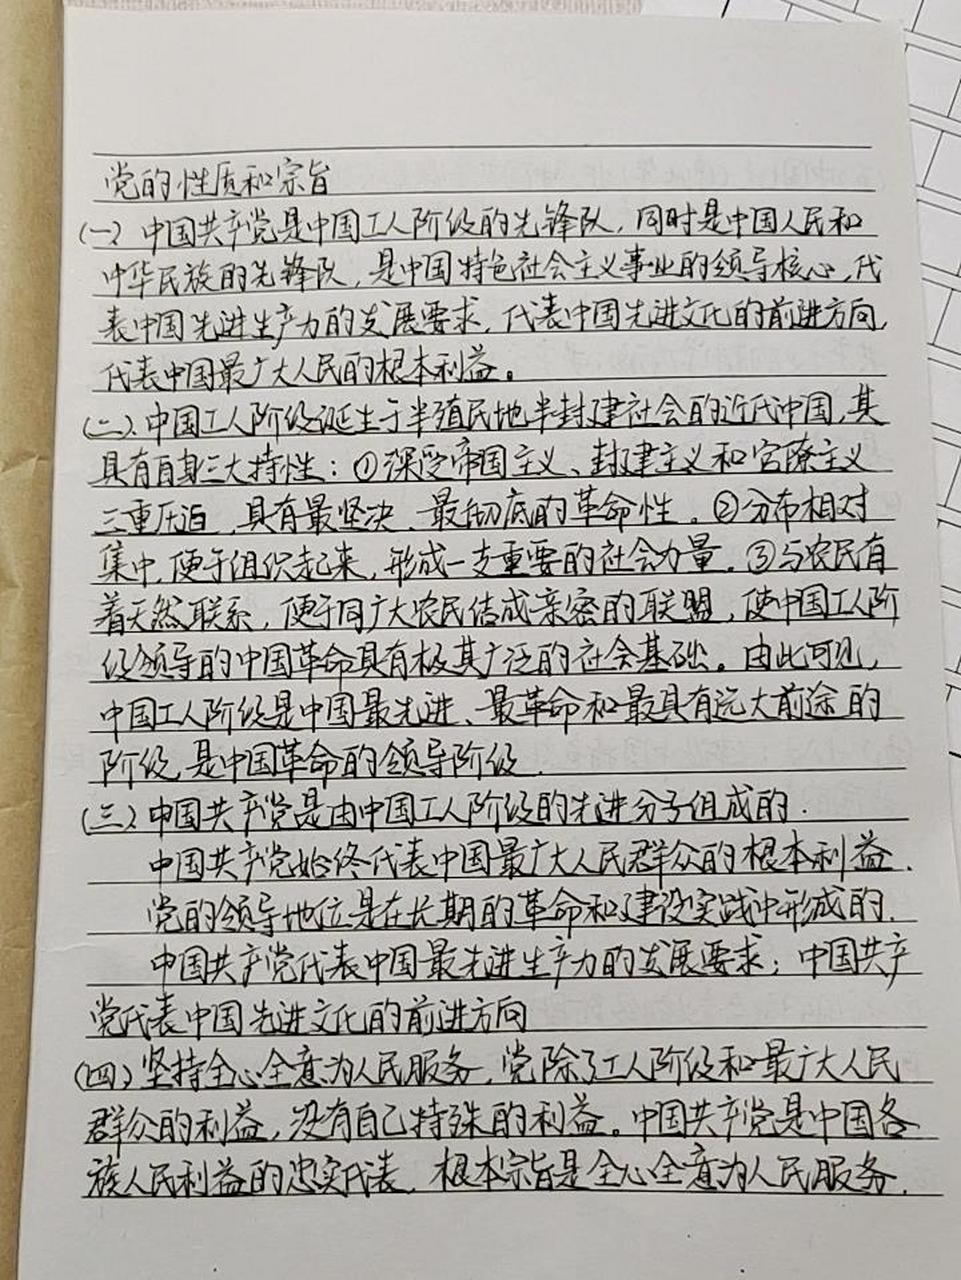 党的性质和宗旨
(一)中国共产党是中国工人阶级的先锋队,同时是中国人民和
中华民族的先锋队,是中国特色社会主义事业的领导核心,代
表中国先进生产力的发展要求,代表中国先进文化的前进方向,
代表中国最广大人民的根本利益。
(二)中国工人阶级诞生于半殖民地半封建社会的近代中国,其
具有自身三大特性:①深受帝国主义、封建主义和官僚主义
三重压迫,具有最坚决、最彻底的革命性。②分布相对
集中,便于组织起来,形成一支重要的社会力量。③与农民有
着天然联系,便于同广大农民结成亲密的联盟,使中国工人阶
级领导的中国革命具有极其广泛的社会基础。由此可见,
中国工人阶级是中国最先进、最革命和最具有远大前途的
阶级,是中国革命的领导阶级.
(三)中国共产党是由中国工人阶级的先进分子组成的.
中国共产党始终代表中国最广大人民群众的根本利益.
党的领导地位是在长期的革命和建设实践中形成的.
中国共产党代表中国最先进生产力的发展要求;中国共产
党代表中国先进文化的前进方向
(四)坚持全心全意为人民服务,党除了工人阶级和最广大人民
群众的利益,没有自己特殊的利益。中国共产党是中国各
族人民利益的忠实代表,根本宗旨是全心全意为人民服务.